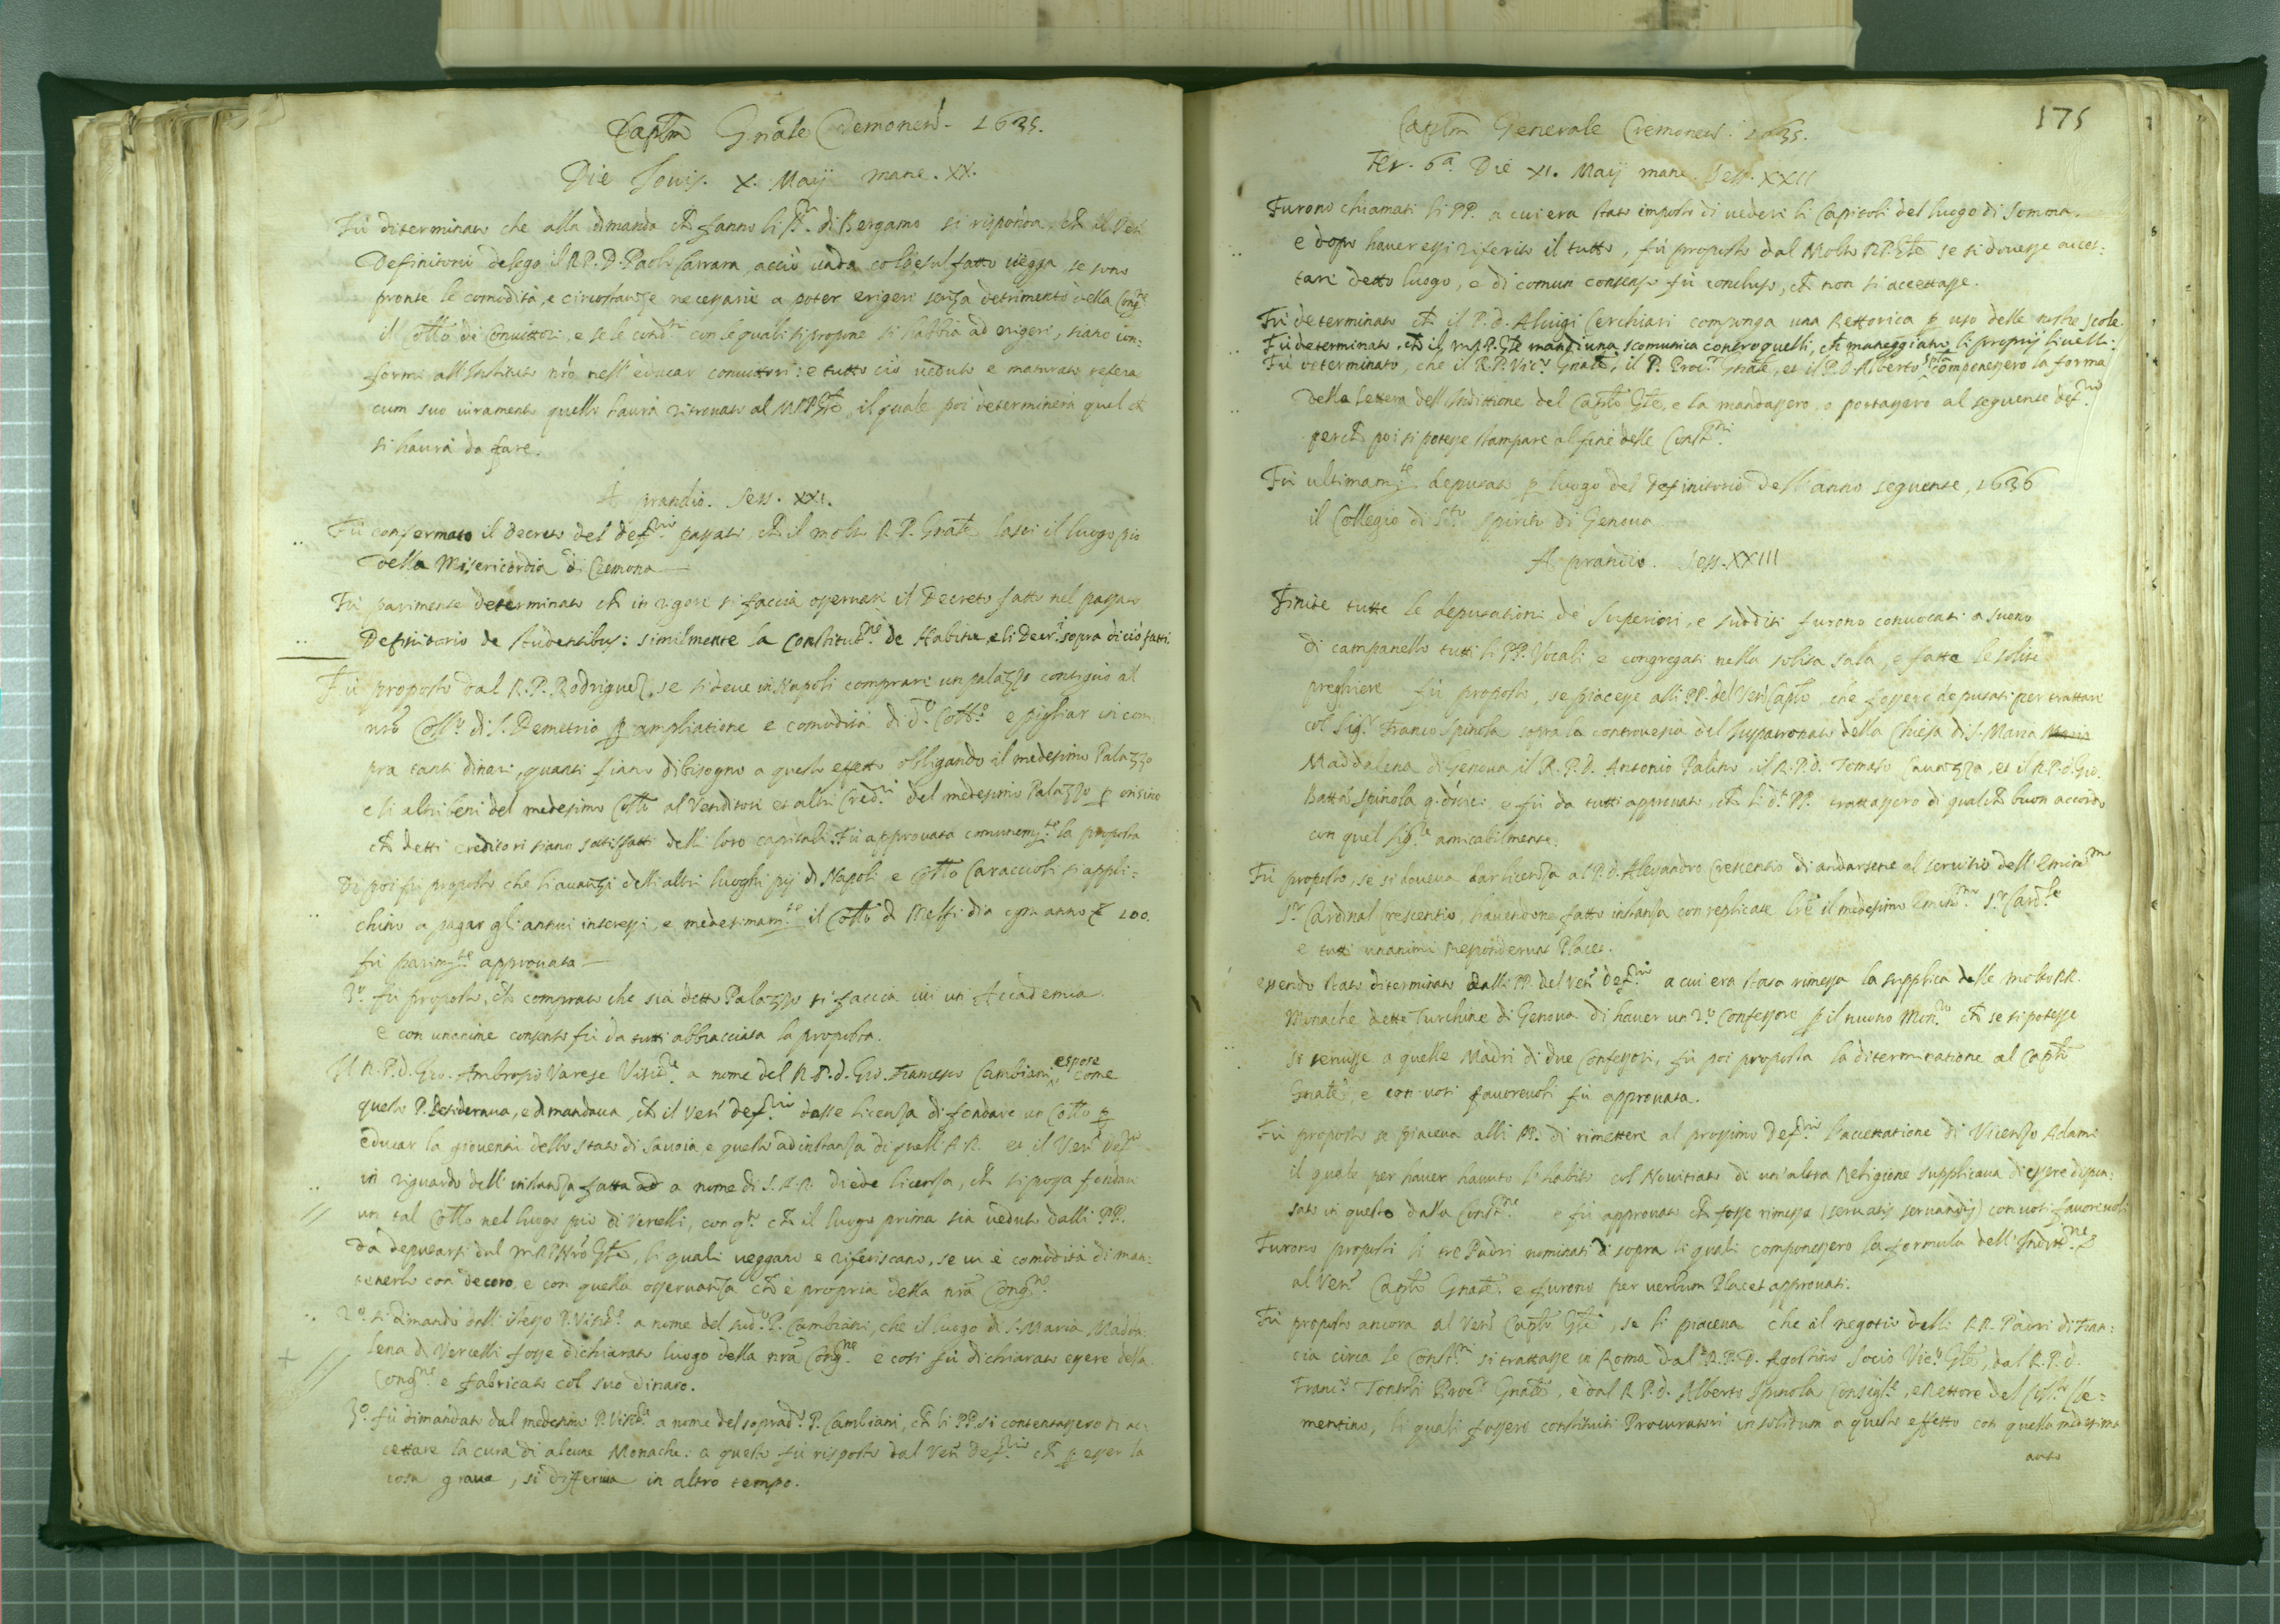 Captm Gnãle Cremonens. 1635.
Die Jovis. X. Maij mane. XX.
Fù determinato che alla dimanda ch̃ fanno li di Bergamo si risponda, ch̃ il Ven
Definitorio delega il R.P.D. Paolo Carrara, acciò vada colà e sul fatto vegga, se sono
pronte le comodità, e circostanze necessarie a poter erigere senza detrimento della Congne
il Collo de Convittori, e se le condni con le quali si propone si habbia ad erigere, siano con:
formi all'Instituto nro nell'educar convittori: e tutto ciò veduto e maturato refera
cum suo iuramento quello haurà ritrovato al M.R.P. Gñle, il quale poi determinerà quel ch̃
si haurà da fare.
A prandio. Sess. XXI.
Fù confermato il decreto del defrio passato, ch̃ il molto R.P. Gnãle lasci il luogo pio
della Misericordia di Cremona
Fù parimente determinato ch̃ in rigore si faccia osservare il Decreto fatto nel passato
Definitorio de studentibus: similmente la Constitutne de Habitu, e li Decrti sopra di ciò fatti.
Fù proposto dal R.P. Rodriguez, se si deve in Napoli comprare un palazzo contiguo al
nro Collo di S. Demetrio p ampliatione e comodità di do Collo e pigliar in com
pra tanti dinari, quanti siano di bisogno a questo effetto obligando il medesimo Palazzo
e li altri beni del medesimo Collo al Venditore et altri Credri del medesimo Palazzo p insino
ch̃ detti creditori siano sotisfatti delli loro capitali. Fù approvata comunemte la proposta
Di poi fù proposto che li avanzi delli altri luoghi pij di Napoli e Collo Caraccioli si appli:
chino a pagar gl'annui interessi, e medesimamte il Collo di Melfi dia ogn anno 100.
fù parimte approvata
3o fù proposto, ch̃ comprato che sia detto Palazzo si faccia ivi un Accademia.
e con unanime consenso fù da tutti abbracciata la proposta.
Il R.P.d. Gio. Ambrosio Varese Visitre a nome del R.P.d. Gio. Francesco Cambiani espose come
questo P. Desiderava, e dimandava, ch̃ il Ven defrio dasse licenza di fondare un Collo p
educar la gioventù dello stato di Savoia, e questo ad instanza di quell'A.R. et il Ven Defrio
in riguardo dell'instanza fatta ad a nome di S.A.R. diede licenza, ch̃ si possa fondare
un tal Collo nel luogo pio di Vercelli, con qto ch̃ il luogo prima sia veduto dalli PP.
da deputarsi dal M.R.P. Nrõ Gñle, li quali veggano e riferiscano, se vi è comodità di man:
tenerlo con decoro, e con quella osservanza ch̃ è propria della nra Congne
2o si dimandò dall'istesso P. Visitre a nome del sudo P. Cambiani, che il luogo di S. Maria Madda
lena di Vercelli fosse dichiarato luogo della nra Congne e così fù dichiarato essere della
Congne e fabricato col suo dinaro.
3o fù dimandato dal medesimo P. Visitre a nome del soprado P. Cambiani, ch̃ li PP. si contentassero di ac:
cettare la cura di alcune Monache: a questo fù risposto dal Ven Defrio ch̃ p esser la
cosa grave, si differiva in altro tempo.
175
Captm Generale Cremonens. 1635.
Fer. 6a Die XI. Maij mane. Sess. XXII
Furono chiamati li PP. a cui era stato imposto di vedere li Capitoli del luogo di Somona.
e dopo haver essi riferito il tutto, fù proposto dal Molto R.P. Gñle se si dovesse accet:
tare detto luogo, e di comun consenso fù concluso, ch̃ non si accettasse.
Fù determinato ch̃ il P.d. Aluigi Cerchiari componga una Rettorica p uso delle nostre scole.
Fù determinato, ch̃ il M.R.P. Gñle mandi una scomunica contro quelli, ch̃ maneggiano li proprij livelli.
Fù determinato, che il R.P. Vico Gnãle, il P. Procr Gñale, et il P.D. Alberto Spla componessero la forma
della lettera dell'Indittione del Caplo Gñle, e la mandassero, o portassero al seguente defrio
perch̃ poi si potesse stampare al fine delle Constni
Fù ultimamte deputato p luogo del Definitorio dell'anno seguente, 1636
il Collegio di Sto Spirito di Genova
A prandio. Sess. XXIII
Finite tutte le deputationi de' Superiori, e sudditi furono convocati a suono
di campanello tutti li PP. Vocali e congregati nella solita sala, e fatte le solite
preghiere fù proposto, se piacesse alli PP. del Ven Caplo, che fossero deputati per trattare
col Sigr Franco Spinola sopra la controversia del Iuspatronato della Chiesa di S. Maria Maria
Maddalena di Genova il R.P.d. Antonio Palino, il R.P.d. Tomaso, et il R.P.d. Gio.
Batta Spinola q. e fù da tutti approvato, ch̃ li dti PP. trattassero di qualch̃ buon accordo
con quel Sigre amicabilmente.
Fù proposto, se si doveva dar licenza al P.d. Alessandro Crescentio di andarsene al servitio dell'Eminmo
Sr Cardinal Crescentio, havendone fatto instanza con replicate lre il medesimo Eminmo Sr Cardle
e tutti unanimi responderunt Placet.
essendo stato determinato dalli PP. del Ven defrio a cui era stata rimessa la supplica delle molto RR.
Monache dette Turchine di Genova di haver un 2o Confessore p il nuovo Monro ch̃ se si potesse
si servisse a quelle Madri di due Confessori, fù poi proposta la determinatione al Caplo
Gnãle, e con voti favorevoli fù approvata.
Fù proposto se piaceva alli PP. di rimettere al prossimo defrio l'accettatione di Vicenzo Adami
il quale per haver havuto l'habito col Novitiato di un'altra Religione supplicava di essere dispen:
sato in questo dalla Constne e fù approvato ch̃ fosse rimessa (servatis servandis) con voti favorevoli
Furono proposti li tre Padri nominati di sopra li quali componessero la formula dell'Inditne
al Ven Caplo Gnãle e furono per verbum Placet approvati.
Fù proposto ancora al Ven Caplo Gñle, se li piaceva che il negotio delli RR. Padri di Fran:
cia circa le Constni si trattasse in Roma dal R.P.D. Agostino Socio Vico Gñle, dal R.P.d.
Franco Tontoli Procr Gnãle, e dal R.P.d. Alberto Spinola Consigre, e Rettore del Collo Cle:
mentino, li quali fossero constituiti Procuratori in solidum a questo effetto con quella medesima
auto